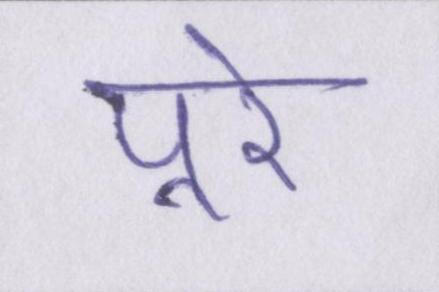 पूरे